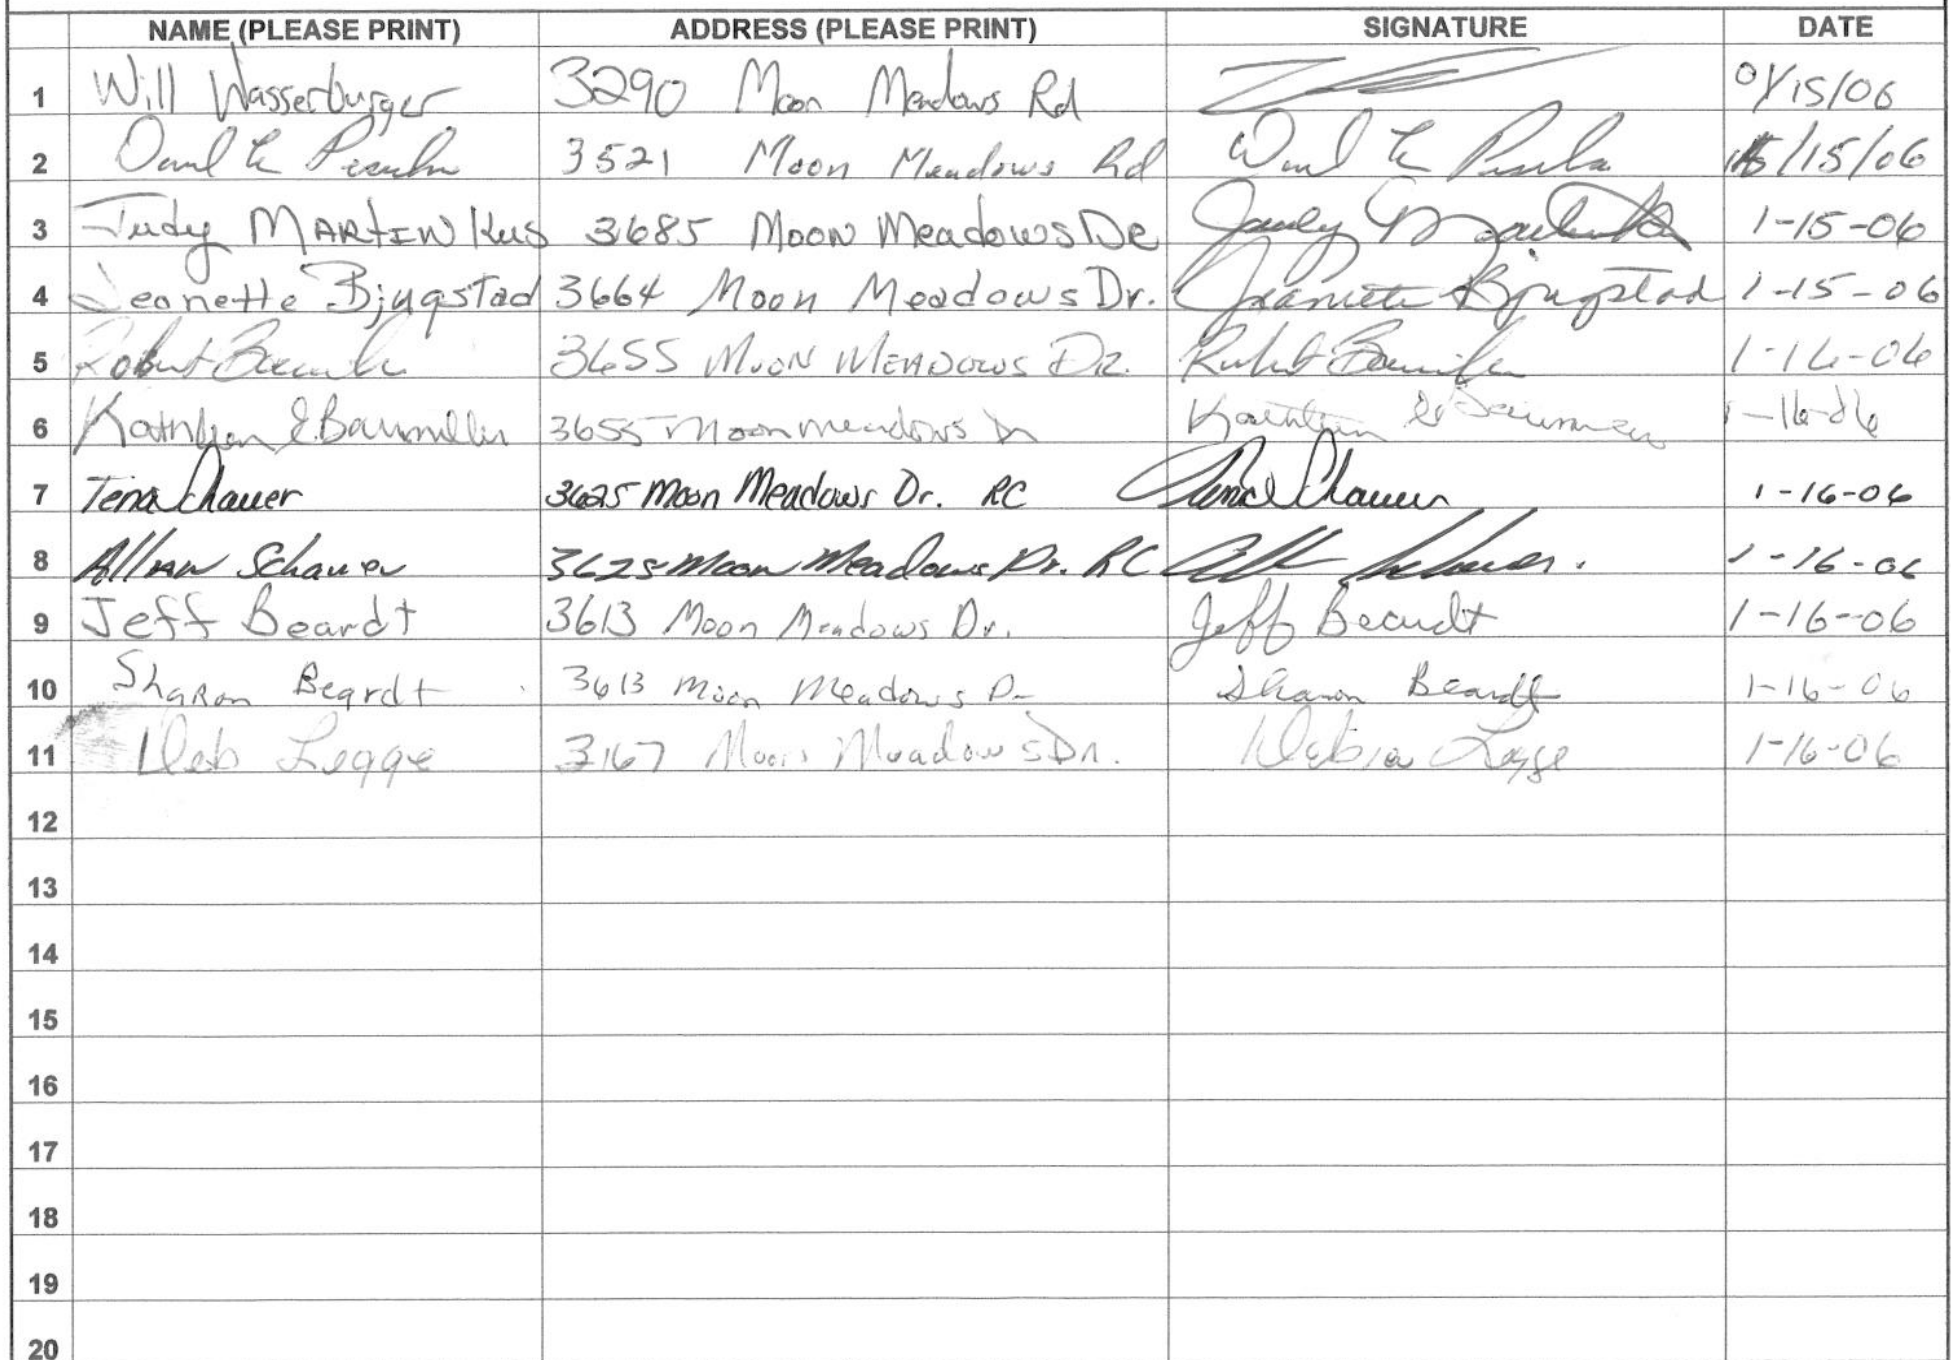 NAME (PLEASE PRINT) ADDRESS (PLEASE PRINT) SIGNATURE DATE
1 Will Wasserburger 3290 Moon Meadows Rd 01/15/06
2 3521 Moon Meadows Rd /15/06
3 Judy MARTINKus 3685 Moon Meadows Dr Judy 1-15-06
4 Jeanette Bjugstad 3664 Moon Meadows Dr. Jeanette Bjugstad 1-15-06
5 Robert 3655 MOON MEADOWS DR. Robert 1-16-06
6 Kathleen E. Baumiller 3655 Moon meadows Dr Kathleen E 1-16-06
7 Tena Schauer 3625 Moon Meadows Dr. RC Tena Schauer 1-16-06
8 Allan Schauer 3625 Moon Meadows Dr. RC 1-16-06
9 Jeff Beardt 3613 Moon Meadows Dr. Jeff Beardt 1-16-06
10 Sharon Beardt 3613 Moon Meadows Dr Sharon Beardt 1-16-06
11 Deb Legge 3167 Moon Meadows Dr. Debra Legge 1-16-06
12
13
14
15
16
17
18
19
20